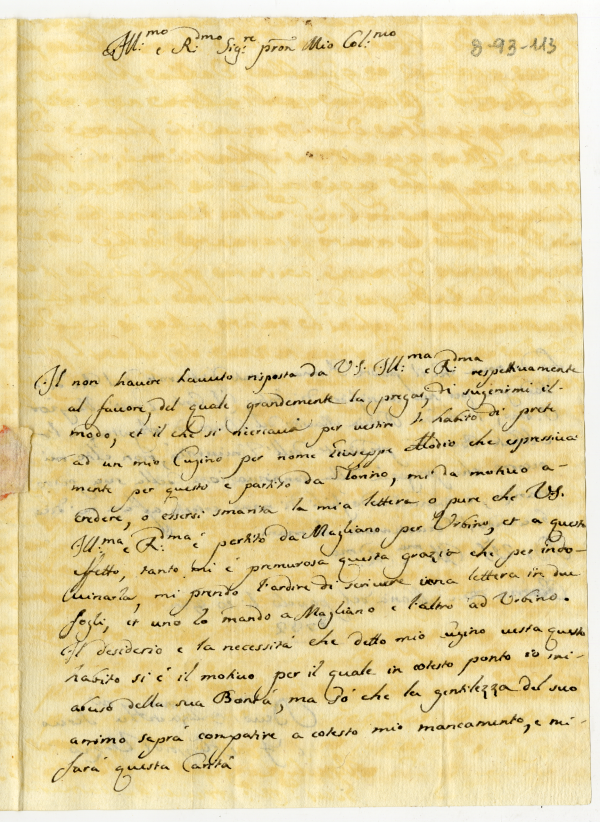 Ill:mo e R:dmo Sig:re pron Mio Col:mo
8-93-113
Il non havere havuto risposta da V.S. Ill:ma e R:dma respettivamente
al favore, del quale grandemente la pregai, di sugerirmi il
modo, et il che si ricercava per vestire l' habito di prete
ad un mio Cugino per nome Giuseppe che espressiva
mente per questo è partito da Torino, mi da motivo a-
credere, o essersi smarita la mia lettera o pure che V.S.
Ill:ma e R:dma è partito da Magliano per Urbino, et a questo
effetto, tanto mi è premurosa questa grazia che per indo-
vinarla, mi prendo l'ardire di scrivere una lettera in due
fogli, et uno lo mando a Magliano e l'altro ad Urbino.
Il desiderio e la necessità che detto mio Cugino vesta questo
habito si è il motivo per il quale in cotesto ponto io mi
abuso della sua Bontà, ma sò che la gentilezza del suo
animo saprà compatire a cotesto mio mancamento, e mi
farà questa Carità